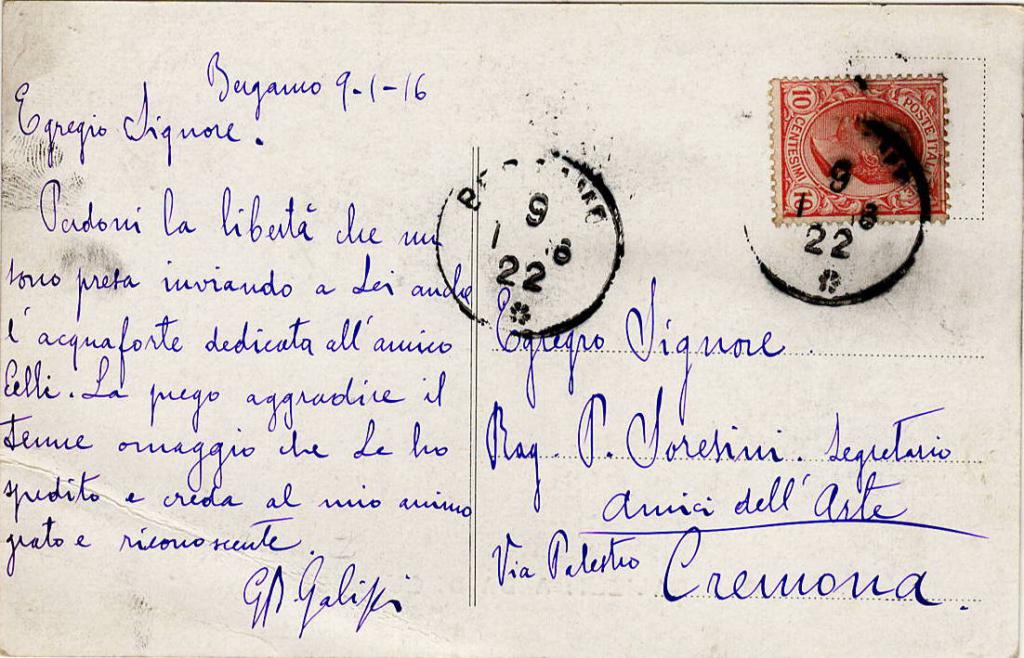 Bergamo 9-1-16
Egregio Signore.
Perdoni la libertà che mi
sono presa inviando a Lei anche
l'acquaforte dedicata all'amico
Celli. La prego aggradire il
tenue omaggio che Le ho
spedito e creda al mio animo
grato e riconoscente.
9
1 6
22
POSTE ITAL
10 CENTESIMI 10
9
1 6
22
Egregio Signore
Rag. P. Soresini. Segretario
Amici dell'Arte
Via Palestro
Cremona.